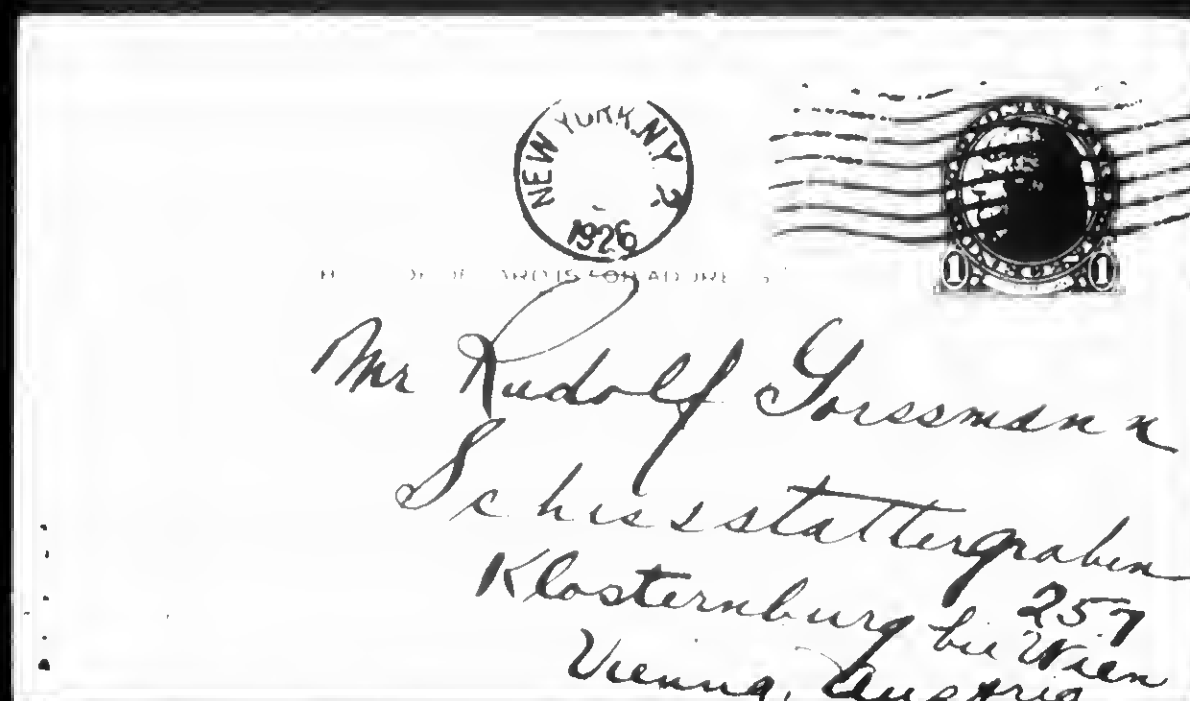 NEW YORK, N.Y. 2
1926
1 1
Mr Rudolf Gorssmann
Schissstattergraben
257
Klosternburg bei Wien
Vienna, Austria